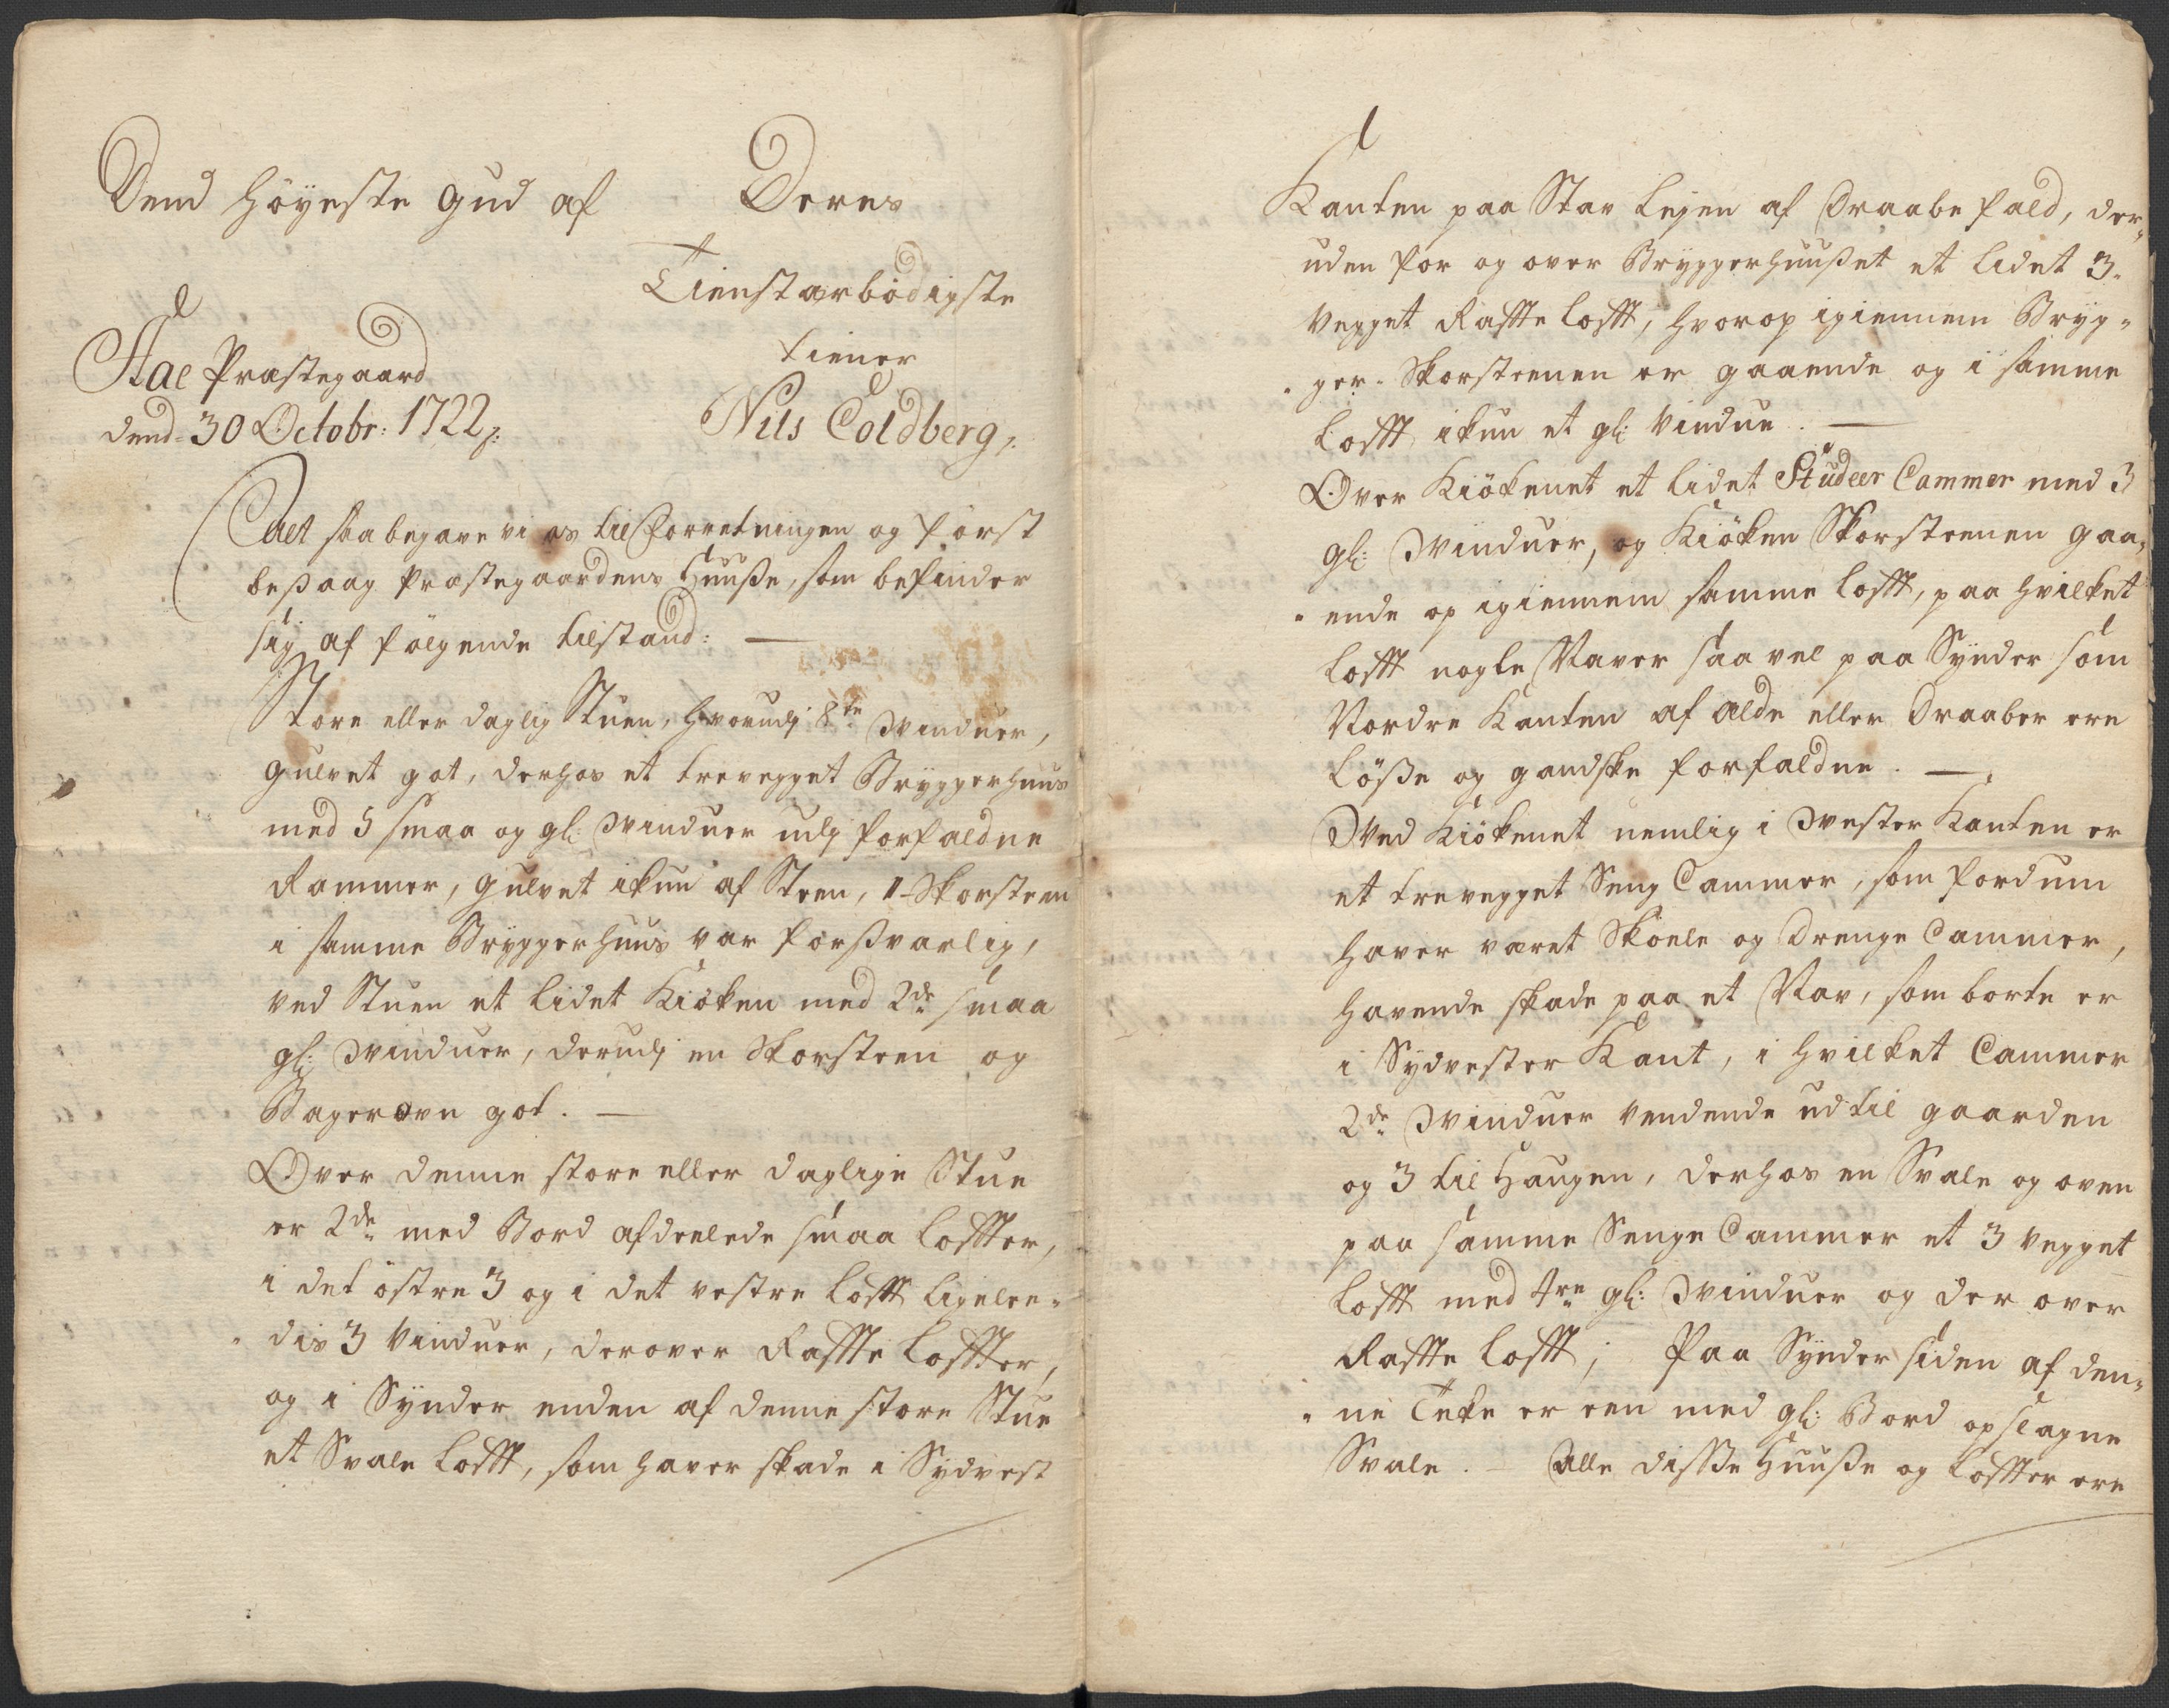 Dend Höyeste Gud af
Deres
Tienstærbödigste
tiener
Nils Coldberg,
Aal Præstegaard
dend 30 Octobr: 1722
Alt saa begave vi os til Forretningen og først
besaag Præstegaardens Huuße, som befinder
sig af følgende tilstand: —
Store eller daglig Stuen, hvorudj 8te Winduer,
gulvet got, derhos et trevegget Bryggerhuus
med 5 smaa og gl: Winduer udj forfaldne
Rammer, gulvet ikun af Steen, 1 Skorsteen
i samme Bryggerhuus var forsvarlig,
ved Stuen et lidet Kiöken med 2de smaa
gl: Winduer, derudj en Skorsteen og
Bagerovn got. —
Over denne store eller daglige Stue
er 2de med Bord afdeelede smaa Loffter,
i det östre 3 og i det vestre Lofft ligelee-
dis 3 Vinduer, derover Raffte Loffter,
og i Synder enden af denne store Stue
et Svale Lofft, som haver skade i Sydvest
Kanten paa Stav Lejen af Draabe fald, der-
uden for og over Bryggerhuußet et lidet 3-
vegget Raffte Lofft, hvorop igiennem Bryg-
ger-Skorsteenen er gaaende og i samme
Lofft ikun et gl: Vindue. —
Over Kiökenet et lidet Studeer Cammer med 3
gl: Winduer, og Kiöken Skorsteenen gaa-
ende op igiennem samme Lofft, paa hvilket
Lofft nogle Naver saavel paa Synder som
Nordre Kanten af ælde eller Draaber ere
Löße og gandske forfaldne. —
Wed Kiökenet nemlig i Wester Kanten er
et trevegget Seng Cammer, som fordum
haver været Skoele og Drenge Cammer,
havende skade paa et Nav, som borte er
i Sydvester Kant, i hvilket Cammer
2de Winduer vendende ud til gaarden
og 3 til Haugen, derhos en Svale og oven
paa samme Senge Cammer et 3 vegget
Lofft med 4re gl: Winduer og der over
Raffte Lofft; Paa Synder siden af den-
ne Leke er een med gl: Bord opslagne
Svale. — Alle disse Huuße og Loffter ere